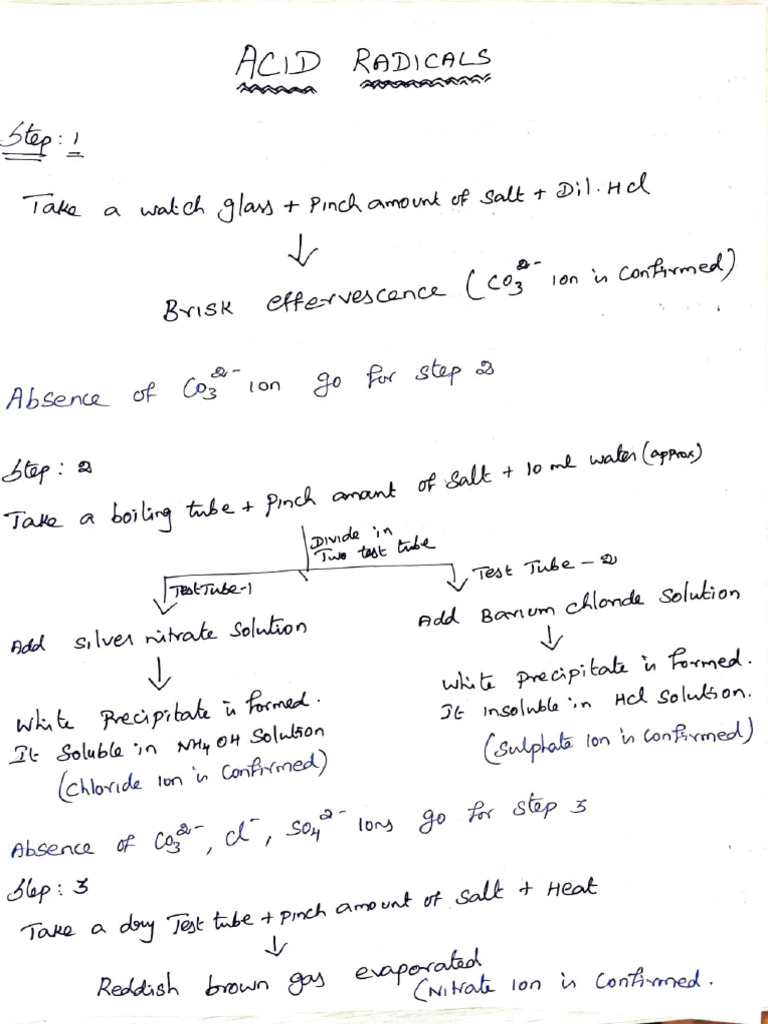 ACID RADICALS
Step: 1
Take a watch glass + Pinch amount of salt + Dil. Hcl
↓
Brisk effervescence (CO₃²⁻ ion is confirmed)
Absence of CO₃²⁻ ion go for step 2
Step: 2
Take a boiling tube + Pinch amount of salt + 10 ml water (approx)
Divide in
Two test tube
Test Tube-1
Test Tube - 2
Add silver nitrate solution
↓
White Precipitate is formed.
It soluble in NH₄OH solution
(Chloride ion is confirmed)
Add Barium chloride solution
↓
White precipitate is formed.
It insoluble in Hcl solution.
(Sulphate ion is confirmed)
Absence of CO₃²⁻, cl⁻, SO₄²⁻ ions go for step 3
Step: 3
Take a dry Test tube + pinch amount of salt + Heat
↓
Reddish brown gas evaporated
(Nitrate ion is confirmed.